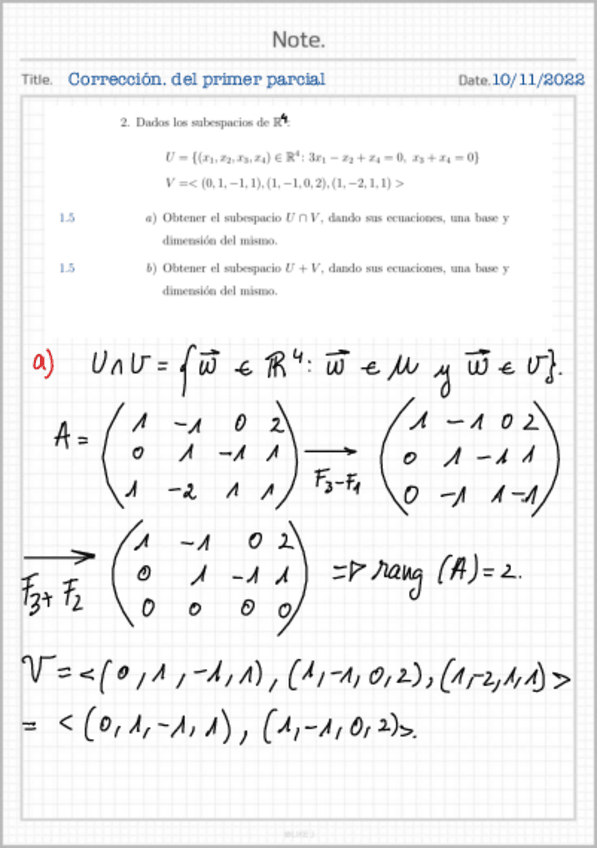 Note.
Title. Corrección. del primer parcial Date. 10/11/2022
2. Dados los subespacios de ℝ⁴:
U = {(x₁, x₂, x₃, x₄) ∈ ℝ⁴ : 3x₁ − x₂ + x₄ = 0, x₃ + x₄ = 0}
V =< (0, 1, −1, 1), (1, −1, 0, 2), (1, −2, 1, 1) >
1.5 a) Obtener el subespacio U ∩ V, dando sus ecuaciones, una base y
dimensión del mismo.
1.5 b) Obtener el subespacio U + V, dando sus ecuaciones, una base y
dimensión del mismo.
a) U∩V = {w⃗ ∈ ℝ⁴: w⃗ ∈ U y w⃗ ∈ V}.
1 -1 0 2 1 -1 0 2
A = 0 1 -1 1 → 0 1 -1 1
1 -2 1 1 F₃-F₁ 0 -1 1 -1
1 -1 0 2
→ 0 1 -1 1 ⇒ rang (A) = 2.
F₃+F₂ 0 0 0 0
V = <(0, 1, -1, 1), (1, -1, 0, 2), (1, -2, 1, 1)>
= <(0, 1, -1, 1), (1, -1, 0, 2)>.